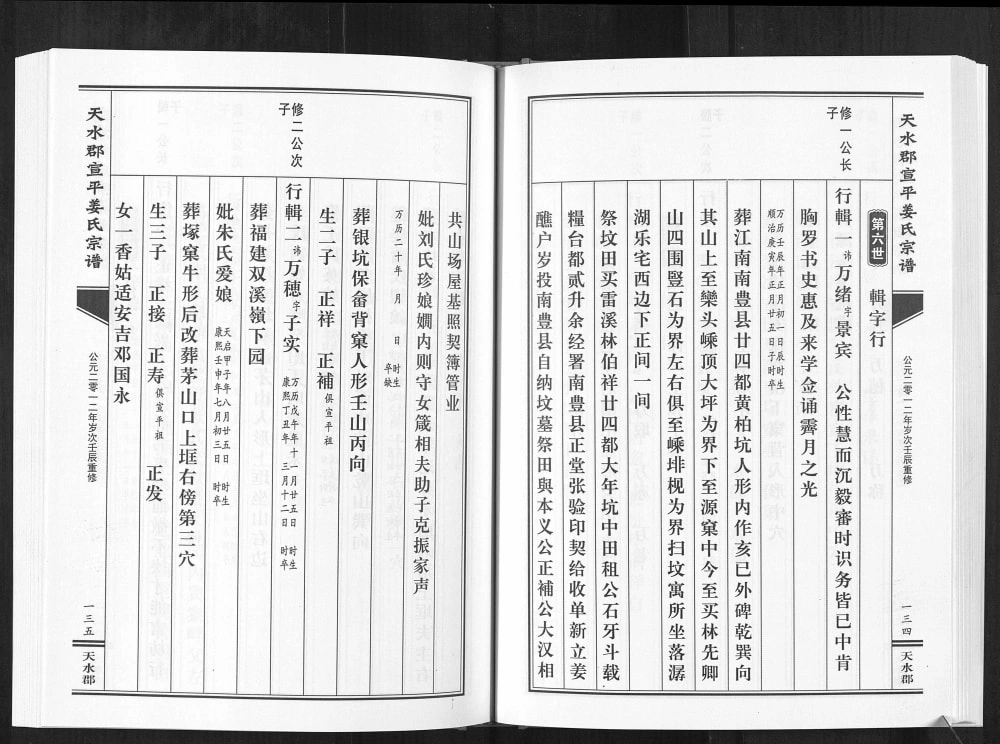 天水郡宣平姜氏宗谱
公元二零一二年岁次壬辰重修
一三四
天水郡
第六世
輯字行
修一公长子
行輯一讳万绪字景宾 公性慧而沉毅審时识务皆已中肯
胸罗书史惠及来学佥诵霽月之光
万历壬辰年正月初一日辰时生
顺治庚寅年正月廿五日子时卒
葬江南南豊县廿四都黄柏坑人形内作亥巳外碑乾巽向
其山上至欒头嵊顶大坪为界下至源窠中今至买林先卿
山四围豎石为界左右俱至嵊排枧为界扫坟寓所坐落潺
湖乐宅西边下正间一间
祭坟田买雷溪林伯祥廿四都大年坑中田租公石牙斗载
糧台都贰升余经署南豊县正堂张验印契给收单新立姜
醮户岁投南豊县自纳坟墓祭田與本义公正補公大汉相
共山场屋基照契簿管业
妣刘氏珍娘嫺内则守女箴相夫助子克振家声
万历二十年 月 日 时生
卒缺
葬银坑保畲背窠人形壬山丙向
生二子 正祥 正補俱宣平祖
修二公次子
行輯二讳万穗字子实
万历戊午年十一月廿五日 时生
康熙丁丑年三月十二日 时卒
葬福建双溪嶺下园
妣朱氏爱娘
天启甲子年八月廿五日 时生
康熙壬申年七月初三日 时卒
葬塚窠牛形后改葬茅山口上垇右傍第三穴
生三子 正接 正寿俱宣平祖 正发
女一香姑适安吉邓国永
天水郡宣平姜氏宗谱
公元二零一二年岁次壬辰重修
一三五
天水郡